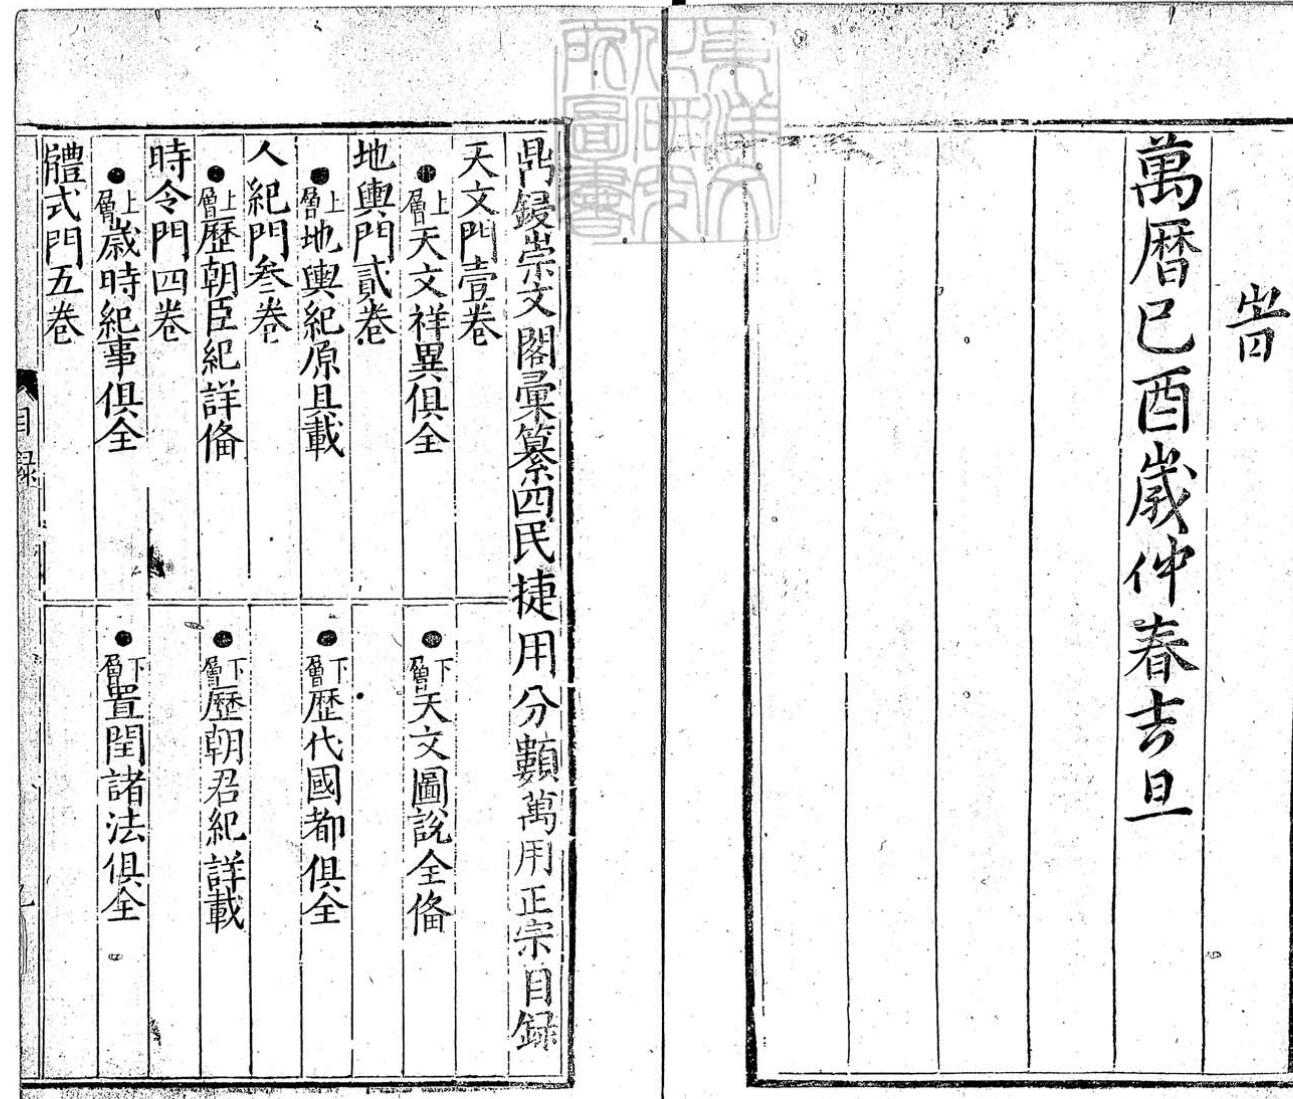 旹
萬曆己酉歲仲春吉旦
鼎鋟崇文閣彙纂四民捷用分類萬用正宗目錄
天文門壹卷
上層天文祥異俱全
下層天文圖說全俻
地輿門貳卷
上層地輿紀原具載
下層歷代國都俱全
人紀門叁卷
上層歷朝臣紀詳俻
下層歷朝君紀詳載
時令門四卷
上層歲時紀事俱全
下層置閏諸法俱全
體式門五卷
目錄